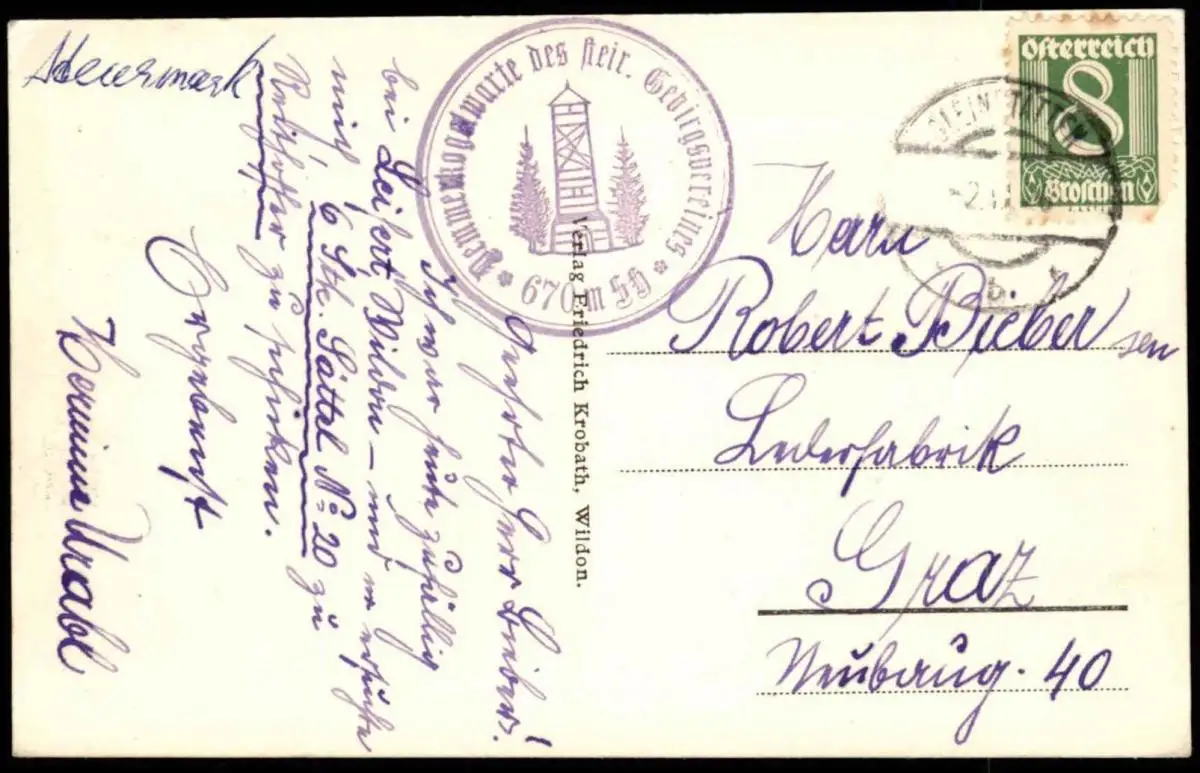 Steiermark
Demmerkogelwarte des steir. Gebirgsvereines
670 m SH
österreich
8
Groschen
GLEINSTÄTTEN
b
Verlag Friedrich Krobath, Wildon.
Herrn
Robert Bieber sen
Lederfabrik
Graz
Neubaug. 40
Geehrter Herr Bieber!
Ich war heute zufällig
bei Leifert Wildon – und er ersuchte
mich, 6 Stk. Sättel No 20 zu
zu schicken.
Ergebenst
Hermine Urabl